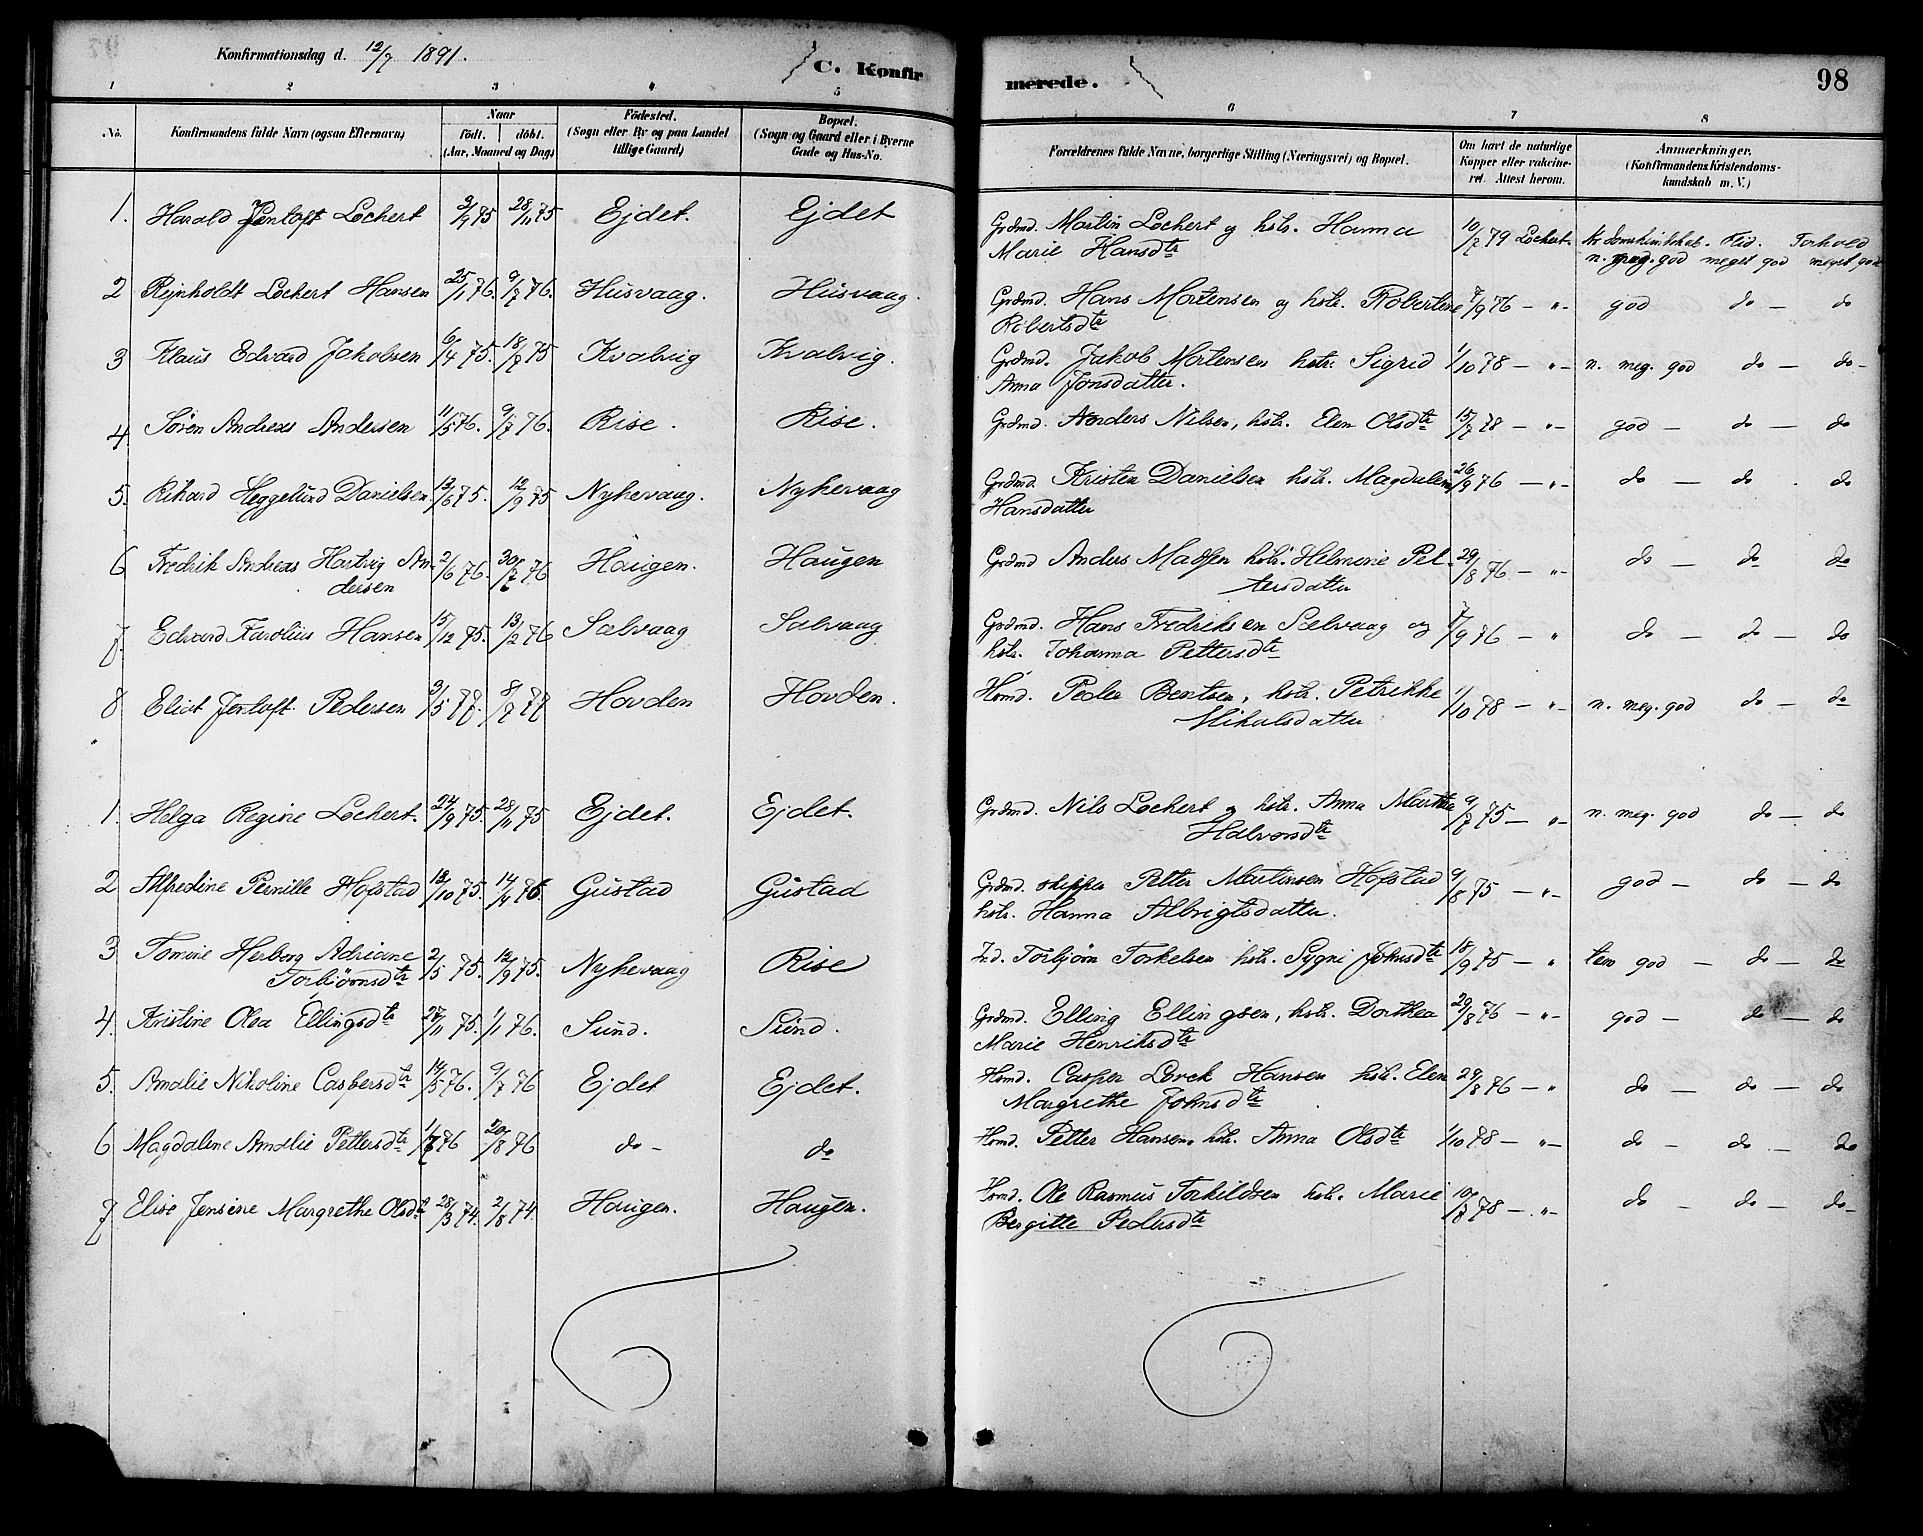 Konfirmationsdag d. 12/7 1891.
C. Konfirmerede.
98
1 2 3 4 5 6 7 8
No. Konfirmandens fulde Navn (ogsaa Efternavn)
Naar födt. döbt. (Aar, Maaned og Dag)
Födested. (Sogn eller By og paa Landet tillige Gaard)
Bopæl. (Sogn og Gaard eller i Byerne Gade og Hus-No.
Forældrenes fulde Navne, borgerlige Stilling (Næringsvei) og Bopæl.
Om havt de naturlige Kopper eller vakcineret. Attest herom.
Anmærkninger. (Konfirmandens Kristendomskundskab m. V.)
1. Harald Jentoft Lockert 28/11 75 Ejdet. Ejdet Grdmd. Martin Lockert og hstr. Hanna Marie Hansdtr 10/7 79 Lockert. Flid. Forhold n. meg. god meget god meget god
2 Rejnholdt Lockert Hansen 25/1 76. 9/7 76. Husvaag. Husvaag. Grdmd. Hans Mortensen og hstr. Robertine Robertsdtr 7/9 76 — " — god do — do
3 Klaus Edvard Jakobsen 6/4 75. 18/7 75 Kvalvig Kvalvig. Grdmd. Jakob Mortensen hstr. Sigrid Anna Jonsdatter. 1/10 78 — " — n. meg. god do — do -
4 Søren Andreas Andersen 11/5 76. 9/7 76. Rise. Rise. Grdmd. Anders Nilsen, hstr. Elen Olsdtr 15/7 78 — " — god — do — do
5. Rikard Heggelund Danielsen 13/6 75. 12/9 75 Nykevaag. Nykevaag Grdmd. Kristen Danielsen hstr. Magdalena Hansdatter 26/9 76 — " — do — do . do
6 Fredrik Andreas Hartvig Andersen 2/6 76. 30/7 76 Haugen. Haugen Grdmd Anders Madsen hstr. Helmine Pettersdatter 29/8 76 — " — do — do do
7. Edvard Karolius Hansen 15/12 75. 13/2 76 Salvaag Salvaag Grdmd. Hans Fredriksen Selvaag og hstr. Johanna Pettersdtr 7/9 76 — " do — do — do
8 Eliot Jentoft Pedersen 3/5 77. 8/7 77 Hovden Hovden. Hsmd. Peder Bentsen, hstr. Petrikke Mikalsdatter 1/10 78 — " — n. meg. god do — do
1. Helga Regine Lockert. 24/9 75. 28/11 75 Ejdet. Ejdet. Grdmd. Nils Lockert og hstr. Anna Martha Halvorsdtr 9/7 75 — " — n. meg. god do — do
2 Alfredine Pernille Hofstad 18/10 75. 14/4 76. Gustad Gustad Grdmd. skipper Petter Martinsen Hofstad hstr. Hanna Albrigtsdatter. 9/8 75 — " — god — do — do
3 Tomine Herborg Adriane Torbjørnsdtr 2/5 75. 12/9 75. Nykevaag Rise Ind. Torbjørn Torkelsen hstr. Sygni Johnsdtr 18/9 75 — " tem god — do — do
4. Kristine Olea Ellingsdtr 27/11 75. 1/1 76. Sund. Sund. Grdmd. Elling Ellingsen, hstr. Dorthea Marie Henriksdtr 29/8 76 — " — god — do — do
5. Amalie Nikoline Caspersdtr 14/5 76. 9/7 76 Ejdet Ejdet. Hsmd. Casper Lorck Hansen hstr. Elen Margrethe Johnsdtr 29/8 76 — " do — do — do
6 Magdalene Amalie Pettersdtr 1/7 76 20/8 76 do - do Hsmd. Petter Hansen, hstr. Anna Olsdtr 1/10 78 — " — do — do — do
7 Elise Jensine Margrethe Olsdtr 28/3 74. 2/8 74. Haugen. Haugen. Hsmd. Ole Rasmus Torkildsen hstr. Marie Bergitte Pedersdtr 10/8 78 — " — do — do — do -